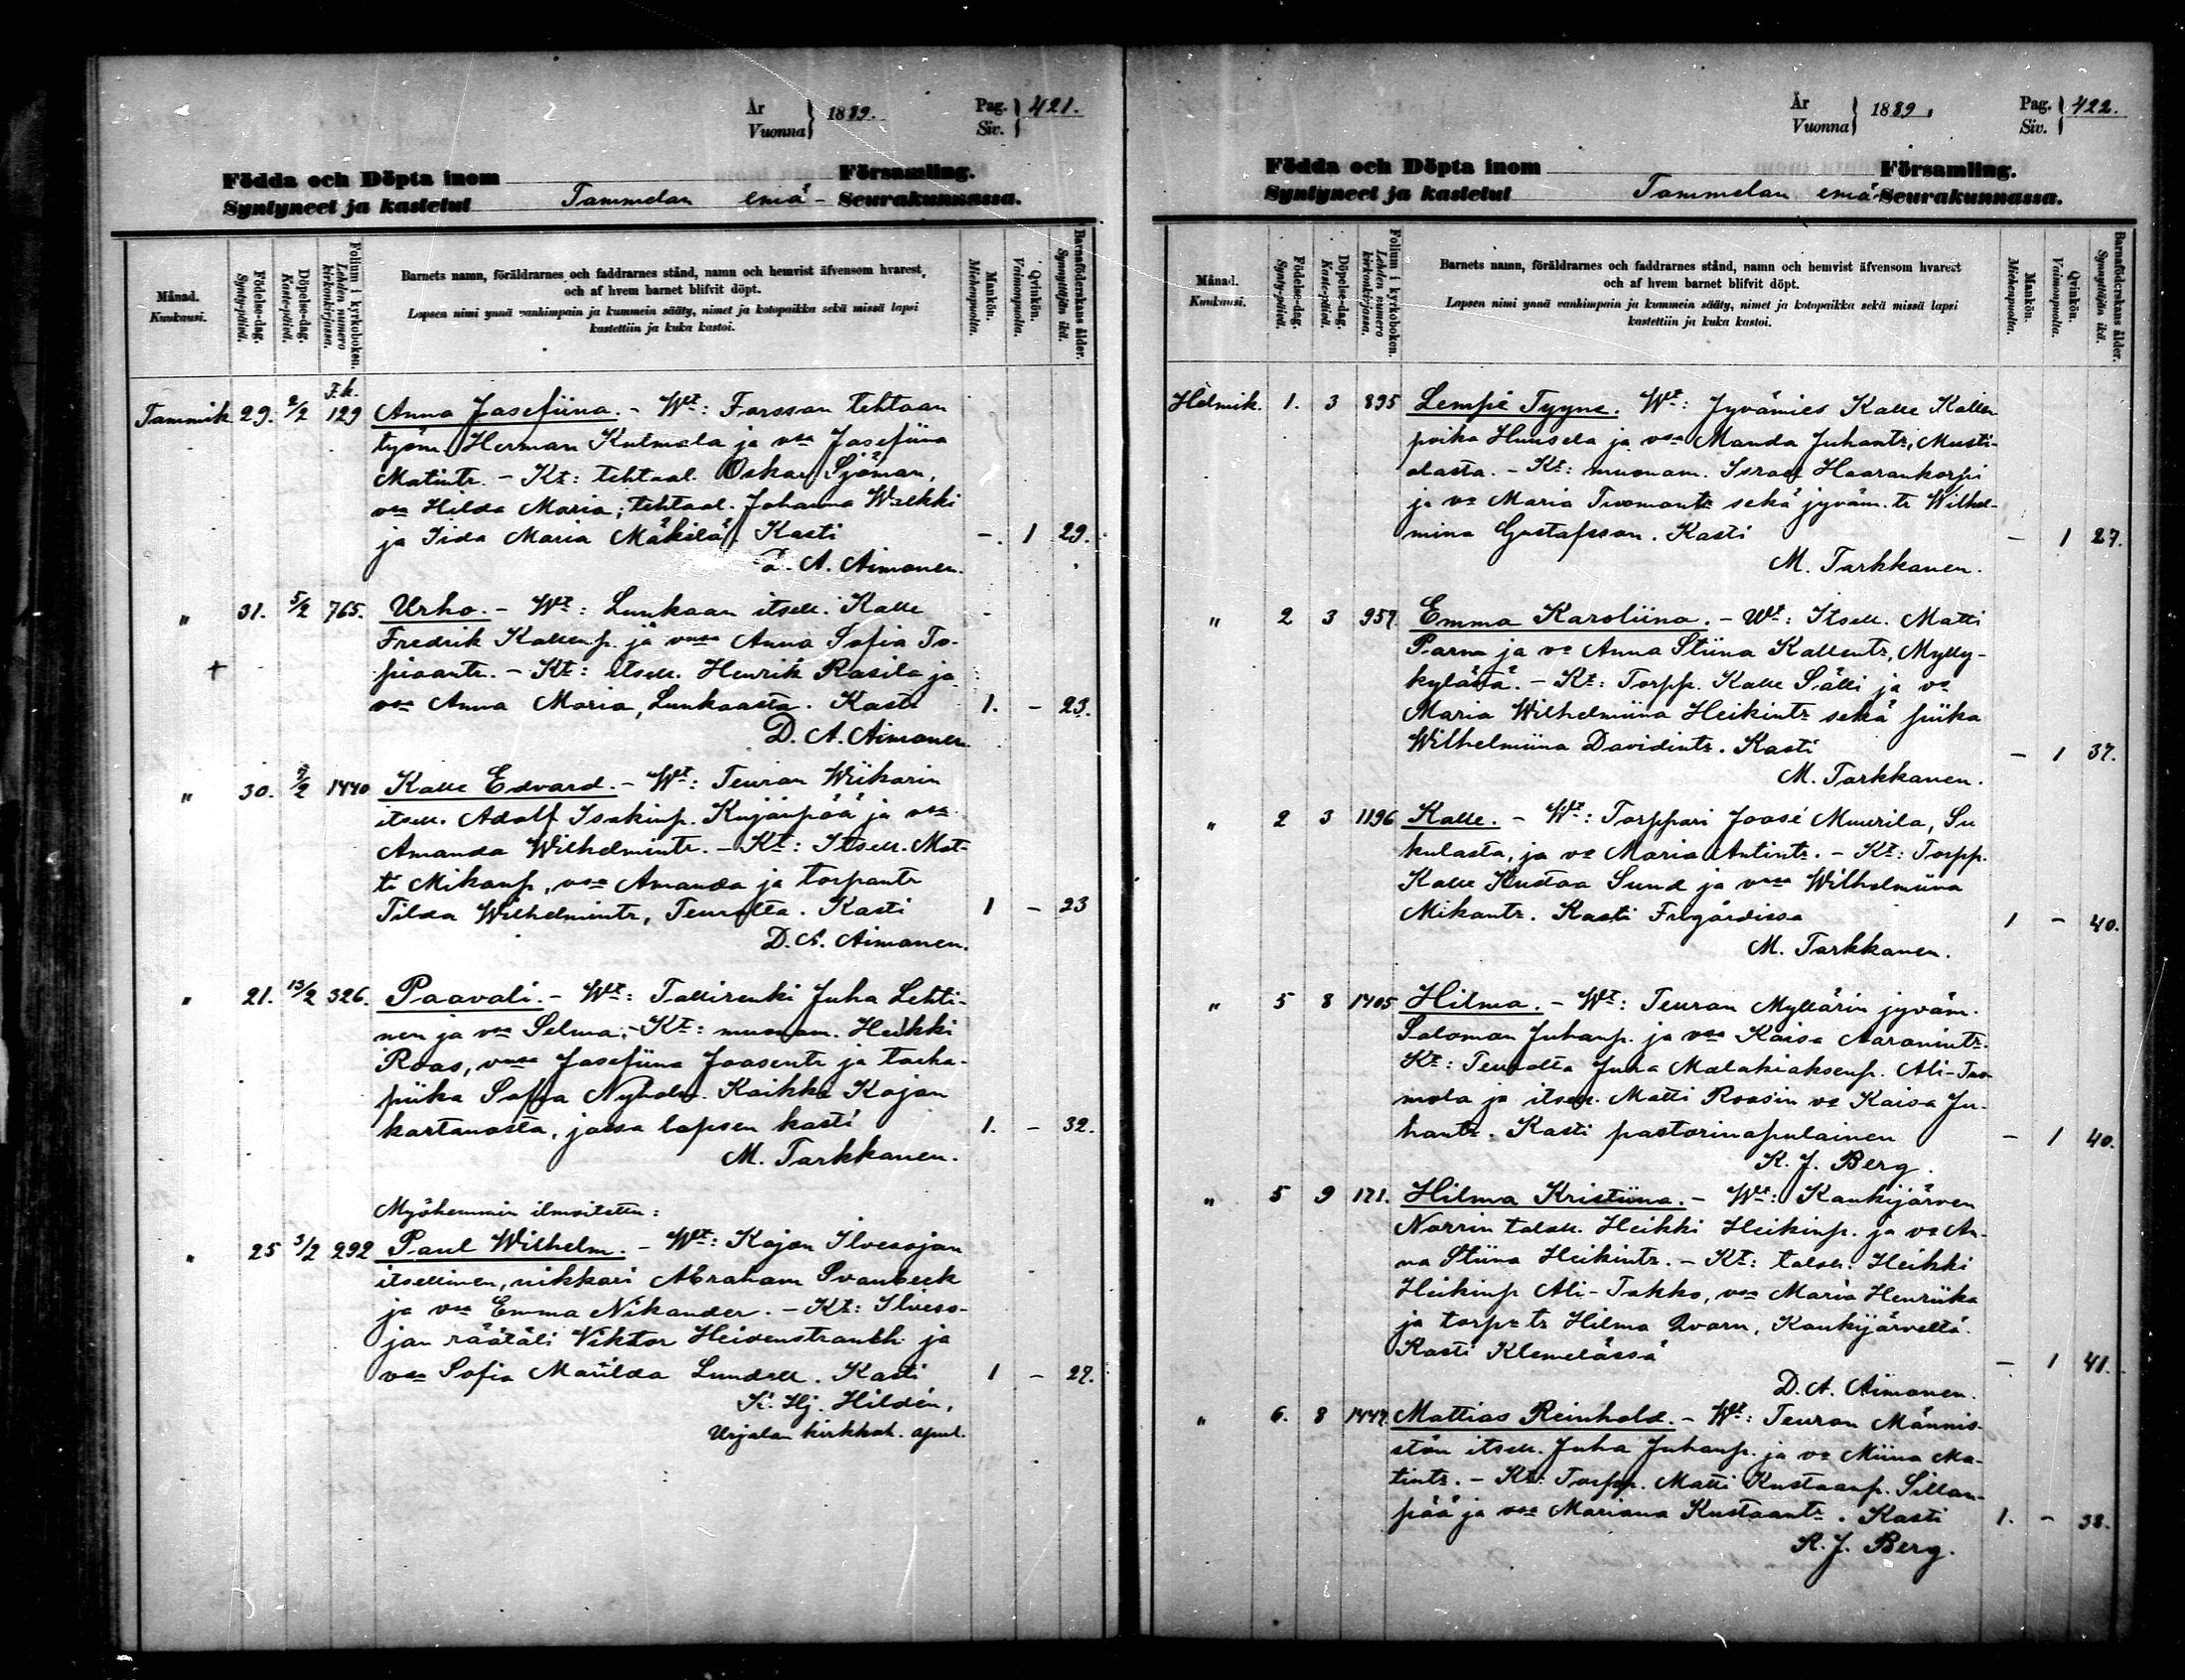 År
Vuonna } 1889.
Pag.
Siv. } 421.
Födda och Döpta inom Församling.
Syntyneet ja kastetut Tammelan emä- Seurakunnassa.
Månad.
Kuukausi.
Födelse-dag.
Synty-päivä.
Döpelse-dag.
Kaste-päivä.
Folium i kyrkoboken.
Lehden numero
kirkonkirjassa.
Barnets namn, föräldrarnes och faddrarnes stånd, namn och hemvist äfvensom hvarest
och af hvem barnet blifvit döpt.
Lapsen nimi ynnä vanhimpain ja kummein sääty, nimet ja kotopaikka sekä missä lapsi
kastettiin ja kuka kastoi.
Mankön.
Miehenpuolta.
Qvinkön.
Vaimonpuolta.
Barnaföderskans ålder.
Synnyttäjän ikä.
F.k.
Tammik 29. 2/2 129 Anna Josefiina. - Wt: Forssan tehtaan
työm. Herman Kulmala ja vsa Josefiina
Matintr. - Kt: tehtaal. Oskar Sjöman,
vsa Hilda Maria; tehtaal. Johanna
ja Iida Maria Mäkilä. Kasti - 1 29.
D. A. Aimonen.
" 31. 5/2 765. Urho. - Wt: Lunkaan itsell. Kalle
Fredrik Kallenp. ja vmsa Anna Sofia To-
+ piaantr. - Kt: itsell. Henrik Rasila ja
vsa Anna Maria, Lunkaasta. Kasti 1. - 23.
D. A. Aimonen.
" 30. /2 1440 Kalle Edvard. - Wt: Teuron Wiikarin
itsell. Adolf Isakinp. Kujanpää ja vsa
Amanda Wilhelmintr. - Kt: Itsell. Mat-
ti Mikanp, vsa Amanda ja torpantr
Tilda Wilhelmintr, Teurolta. Kasti 1 - 23
D. A. Aimonen.
" 21. 13/2 326. Paavali. - Wt: Tallirenki Juha Lehti-
nen ja vsa Selma. - Kt: muonam. Heikki
Roas, vmsa Josefiina Joosentr ja tarha-
piika Sofia Nyholm. Kaikki Kojon
kartanosta, jossa lapsen kasti 1. - 32.
M. Tarkkanen.
Myöhemmin ilmoitettu:
" 25 3/2 292 Paul Wilhelm. - Wt: Kojon Ilvesojan
itsellinen, nikkari Abraham Svanbeck
ja vsa Emma Nikander. - Kt: Ilveso-
jan räätäli Viktor Heidenstrauch ja
vsa Sofia Matilda Lundell. Kasti 1 - 27.
K. Hj. Hildén,
Urjalan kirkkoh. apul.
År
Vuonna } 1889.
Pag.
Siv. } 422.
Födda och Döpta inom Församling.
Syntyneet ja kastetut Tammelan emä- Seurakunnassa.
Månad.
Kuukausi.
Födelse-dag.
Synty-päivä.
Döpelse-dag.
Kaste-päivä.
Folium i kyrkoboken.
Lehden numero
kirkonkirjassa.
Barnets namn, föräldrarnes och faddrarnes stånd, namn och hemvist äfvensom hvarest
och af hvem barnet blifvit döpt.
Lapsen nimi ynnä vanhimpain ja kummein sääty, nimet ja kotopaikka sekä missä lapsi
kastettiin ja kuka kastoi.
Mankön.
Miehenpuolta.
Qvinkön.
Vaimonpuolta.
Barnaföderskans ålder.
Synnyttäjän ikä.
Helmik. 1. 3 895 Lempi Tyyne. Wt: Jyvämies Kalle Kallen
poika Huusela ja vsa Manda Juhantr, Musti-
alasta. - Kt: muonam. Israel Haarankorpi
ja vs Maria Tuomantr sekä jyväm. tr Wilhel-
mina Gustafsson. Kasti - 1 27.
M. Tarkkanen.
" 2 3 957. Emma Karoliina. - Wt: Itsell. Matti
Parna ja vs Anna Stiina Kallentr, Mylly-
kylästä. - Kt: Torpp. Kalle Sälli ja vs
Maria Wilhelmiina Heikintr sekä piika
Wilhelmiina Davidintr. Kasti - 1 37.
M. Tarkkanen.
" 2 3 1196 Kalle. - Wt: Torppari Joosé Muurila, Su
kulasta, ja vs Maria Antintr. - Kt: Torpp.
Kalle Kustaa Sund ja vmsa Wilhelmiina
Mikantr. Kasti Frugårdissa 1 - 40.
M. Tarkkanen.
" 5 8 1405 Hilma. - Wt: Teuron Myllärin jyväm.
Saloman Juhanp. ja vsa Kaisa Aaronintr.
Kt: Teurolta Juha Malakiaksenp. Ali-Tuo-
mola ja itsell. Matti Roosin vs Kaisa Ju-
hantr. Kasti pastorinapulainen - 1 40.
K. J. Berg.
" 5 9 171. Hilma Kristiina. - Wt: Kaukijärven
Norrin talell. Heikki Heikinp. ja vs An-
na Stiina Heikintr. - Kt: talell. Heikki
Heikinp Ali-Takko, vsa Maria Henriika
ja torp tr Hilma Qvarn, Kaukijärveltä.
Kasti Klemelässä - 1 41.
D. A. Aimonen.
" 6. 8 1447. Mattias Reinhold. - Wt: Teuron Männis-
tön itsell. Juha Juhanp. ja vs Miina Ma-
tintr. - Kt: Torpp. Matti Kustaanp. Sillan-
pää ja vsa Mariana Kustaantr. Kasti 1. - 38.
K. J. Berg.